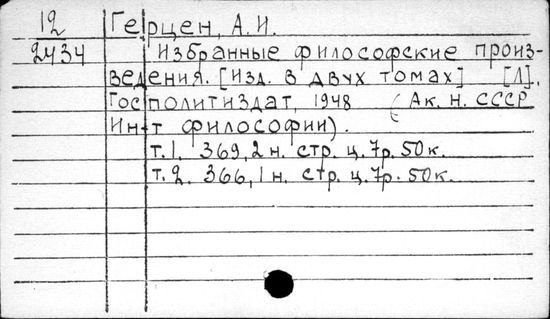 12 Герцен, А.И.
2434 Избранные философские произ-
ведения. [Изд. в двух томах] [Л].
Госполитиздат, 1948 (Ак. н. СССР
Ин-т философии).
т.1. 369, 2 н. стр. ц. 7р. 50к.
т.2. 366, 1 н. стр. ц. 7р. 50к.